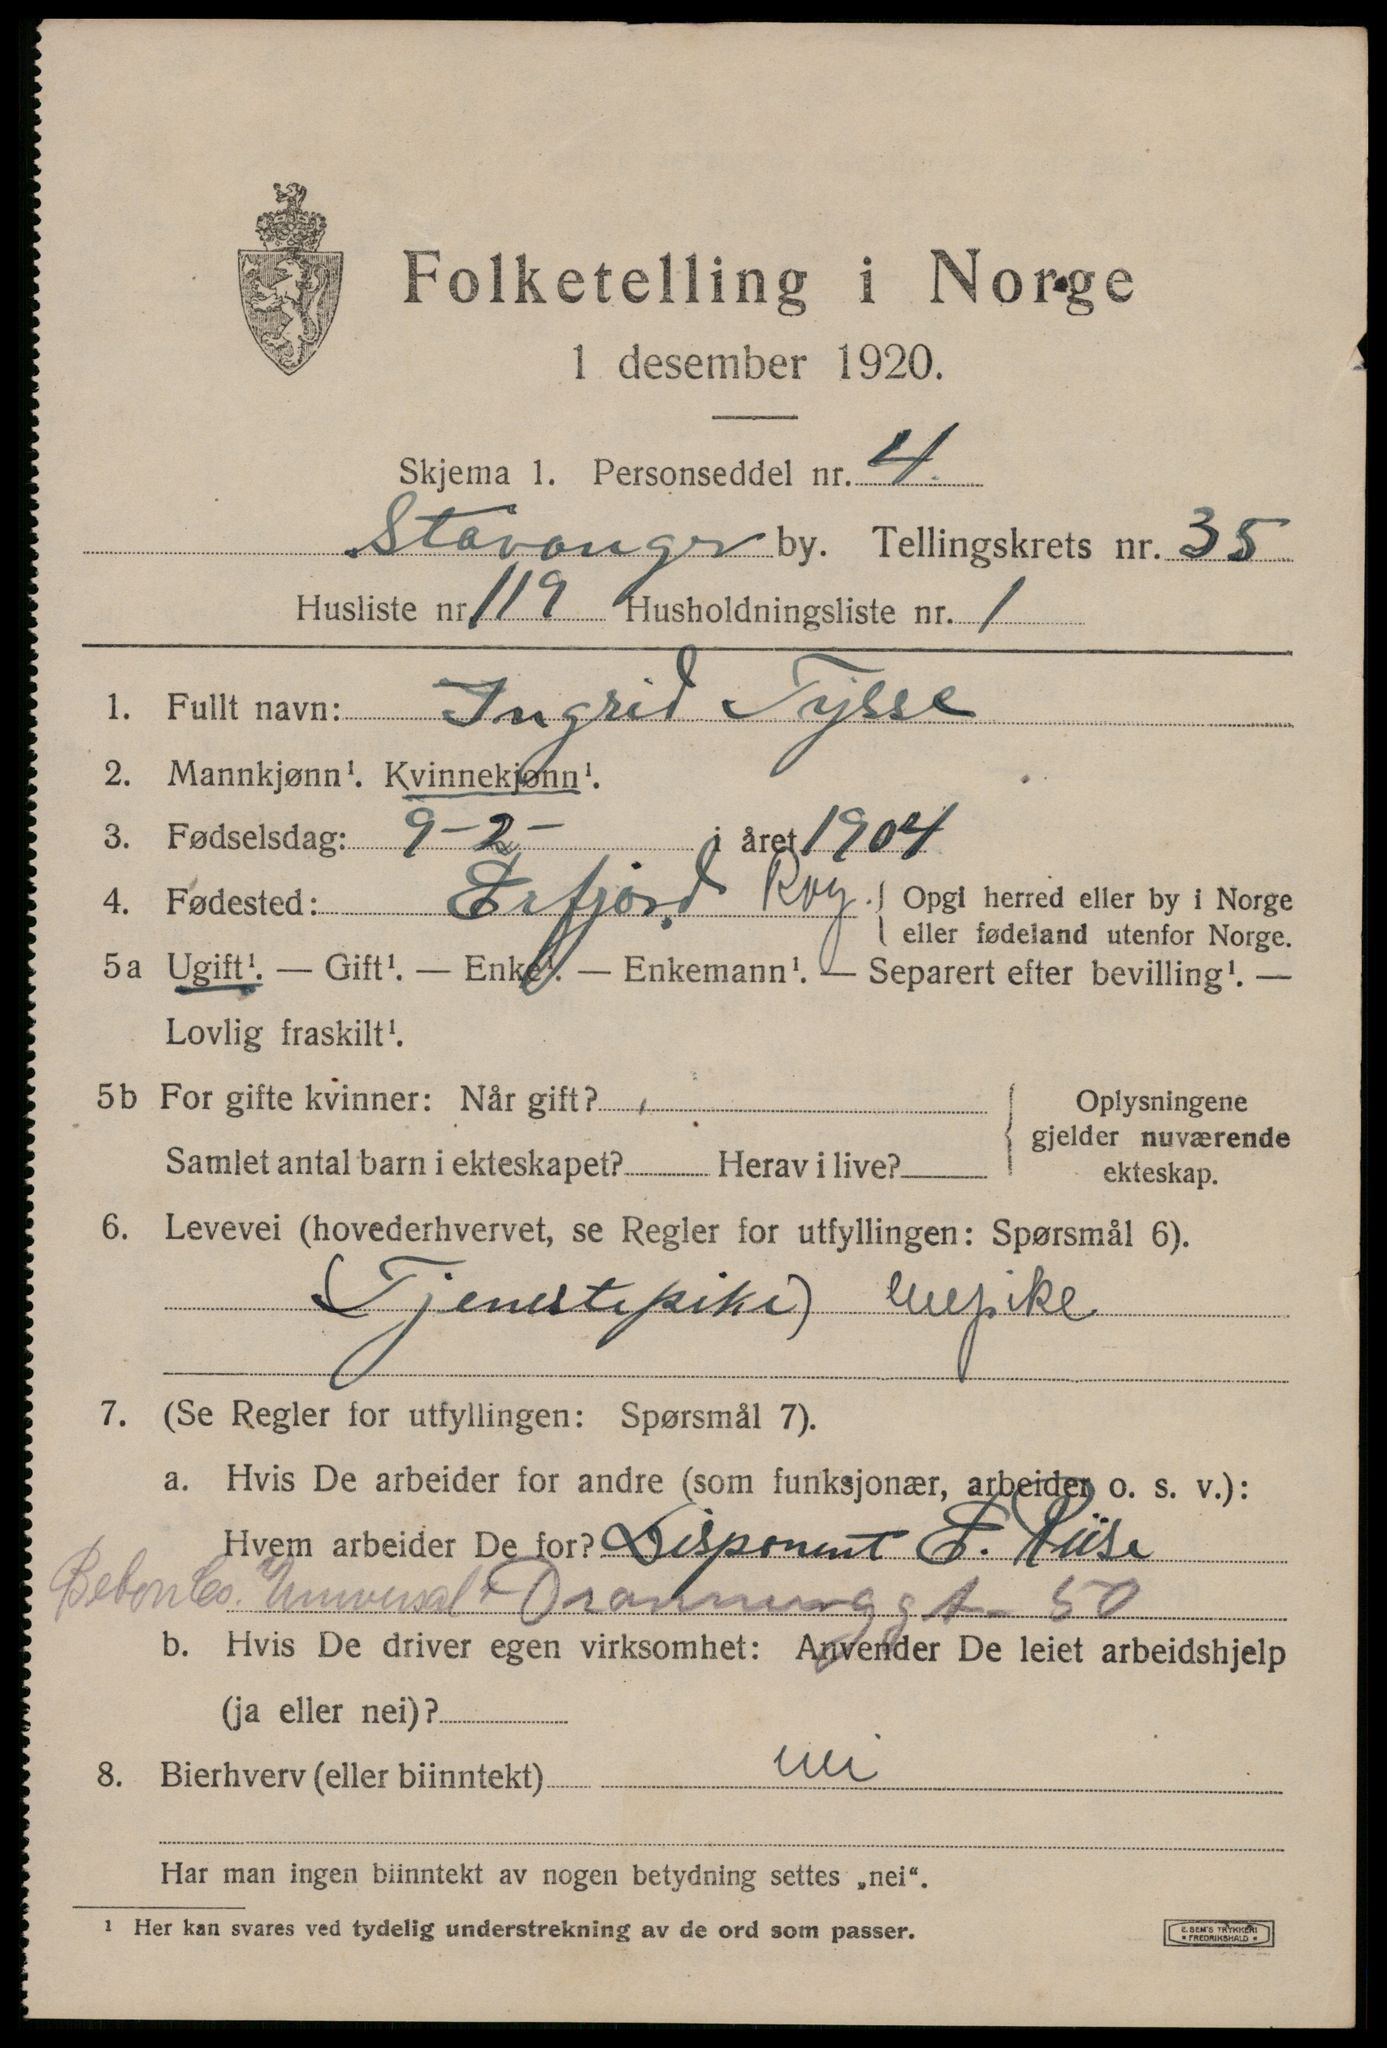 Folketelling i Norge
1 desember 1920.
Skjema 1. Personseddel nr. 4.
Stavanger by. Tellingskrets nr. 35
Husliste nr 119 Husholdningsliste nr. 1
1. Fullt navn: Ingrid Tysse
2. Mannkjønn¹. Kvinnekjønn¹.
3. Fødselsdag: 9-2- i året 1904
4. Fødested: Erfjord Rog. Opgi herred eller by i Norge
eller fødeland utenfor Norge.
5a Ugift¹. — Gift¹. — Enke¹. — Enkemann¹. — Separert efter bevilling¹. —
Lovlig fraskilt¹.
5b For gifte kvinner: Når gift?
Samlet antal barn i ekteskapet? Herav i live?
Oplysningene
gjelder nuværende
ekteskap.
6. Levevei (hovederhvervet, se Regler for utfyllingen: Spørsmål 6).
(Tjenstepike) enepike
7. (Se Regler for utfyllingen: Spørsmål 7).
a. Hvis De arbeider for andre (som funksjonær, arbeider o. s. v.):
Hvem arbeider De for? Disponent E. Riise
Beton Co. Universal Dronningsgt 50
b. Hvis De driver egen virksomhet: Anvender De leiet arbeidshjelp
(ja eller nei)?
8. Bierhverv (eller biinntekt) nei
Har man ingen biinntekt av nogen betydning settes „nei“.
¹ Her kan svares ved tydelig understrekning av de ord som passer.
E. SEM'S TRYKKERI
* FREDRIKSHALD *